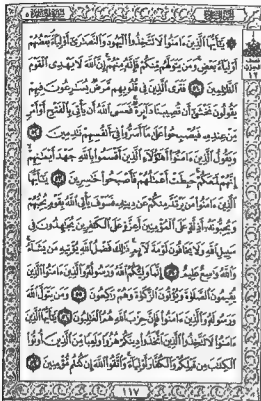 ۞ يَٰٓأَيُّهَا ٱلَّذِينَ ءَامَنُوا۟ لَا تَتَّخِذُوا۟ ٱلْيَهُودَ وَٱلنَّصَٰرَىٰٓ أَوْلِيَآءَ بَعْضُهُمْ
أَوْلِيَآءُ بَعْضٍ وَمَن يَتَوَلَّهُم مِّنكُمْ فَإِنَّهُۥ مِنْهُمْ إِنَّ ٱللَّهَ لَا يَهْدِى ٱلْقَوْمَ
ٱلظَّٰلِمِينَ ٥١ فَتَرَى ٱلَّذِينَ فِى قُلُوبِهِم مَّرَضٌ يُسَٰرِعُونَ فِيهِمْ
يَقُولُونَ نَخْشَىٰٓ أَن تُصِيبَنَا دَآئِرَةٌ فَعَسَى ٱللَّهُ أَن يَأْتِىَ بِٱلْفَتْحِ أَوْ أَمْرٍ
مِّنْ عِندِهِۦ فَيُصْبِحُوا۟ عَلَىٰ مَآ أَسَرُّوا۟ فِىٓ أَنفُسِهِمْ نَٰدِمِينَ ٥٢
وَيَقُولُ ٱلَّذِينَ ءَامَنُوٓا۟ أَهَٰٓؤُلَآءِ ٱلَّذِينَ أَقْسَمُوا۟ بِٱللَّهِ جَهْدَ أَيْمَٰنِهِمْ
إِنَّهُمْ لَمَعَكُمْ حَبِطَتْ أَعْمَٰلُهُمْ فَأَصْبَحُوا۟ خَٰسِرِينَ ٥٣ يَٰٓأَيُّهَا
ٱلَّذِينَ ءَامَنُوا۟ مَن يَرْتَدَّ مِنكُمْ عَن دِينِهِۦ فَسَوْفَ يَأْتِى ٱللَّهُ بِقَوْمٍ يُحِبُّهُمْ
وَيُحِبُّونَهُۥٓ أَذِلَّةٍ عَلَى ٱلْمُؤْمِنِينَ أَعِزَّةٍ عَلَى ٱلْكَٰفِرِينَ يُجَٰهِدُونَ فِى
سَبِيلِ ٱللَّهِ وَلَا يَخَافُونَ لَوْمَةَ لَآئِمٍ ذَٰلِكَ فَضْلُ ٱللَّهِ يُؤْتِيهِ مَن يَشَآءُ
وَٱللَّهُ وَٰسِعٌ عَلِيمٌ ٥٤ إِنَّمَا وَلِيُّكُمُ ٱللَّهُ وَرَسُولُهُۥ وَٱلَّذِينَ ءَامَنُوا۟ ٱلَّذِينَ
يُقِيمُونَ ٱلصَّلَوٰةَ وَيُؤْتُونَ ٱلزَّكَوٰةَ وَهُمْ رَٰكِعُونَ ٥٥ وَمَن يَتَوَلَّ ٱللَّهَ
وَرَسُولَهُۥ وَٱلَّذِينَ ءَامَنُوا۟ فَإِنَّ حِزْبَ ٱللَّهِ هُمُ ٱلْغَٰلِبُونَ ٥٦ يَٰٓأَيُّهَا ٱلَّذِينَ
ءَامَنُوا۟ لَا تَتَّخِذُوا۟ ٱلَّذِينَ ٱتَّخَذُوا۟ دِينَكُمْ هُزُوًا وَلَعِبًا مِّنَ ٱلَّذِينَ أُوتُوا۟
ٱلْكِتَٰبَ مِن قَبْلِكُمْ وَٱلْكُفَّارَ أَوْلِيَآءَ وَٱتَّقُوا۟ ٱللَّهَ إِن كُنتُم مُّؤْمِنِينَ ٥٧
١١٧